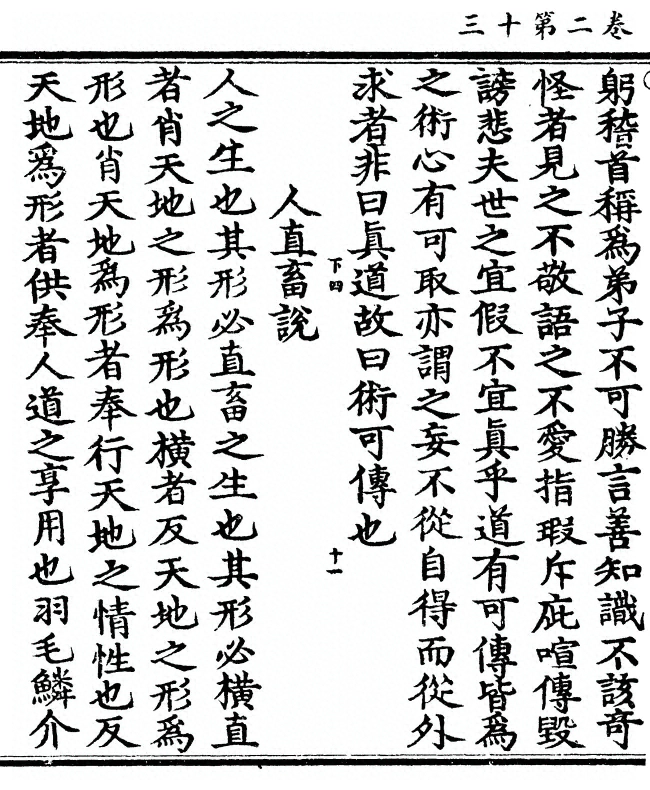 三十第二卷
躬稽首稱爲弟子不可勝言善知識不該奇
怪者見之不敬語之不愛指瑕斥疵喧傳毀
謗悲夫世之宜假不宜眞乎道有可傳皆爲
之術心有可取亦謂之妄不從自得而從外
求者非曰眞道故曰術可傳也
下四
十一
人直畜說
人之生也其形必直畜之生也其形必橫直
者肖天地之形爲形也橫者反天地之形爲
形也肖天地爲形者奉行天地之情性也反
天地爲形者供奉人道之享用也羽毛鱗介